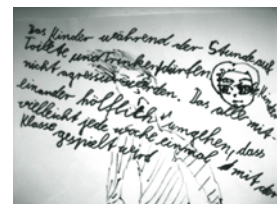 Das Kinder während der Stunde auf
Toilete und trinken dürfen
nicht agresiv werden. Das alle mit-
einander höfflich umgehen, dass
vielleicht jede woche einmal mit der
Klasse gespielt wird